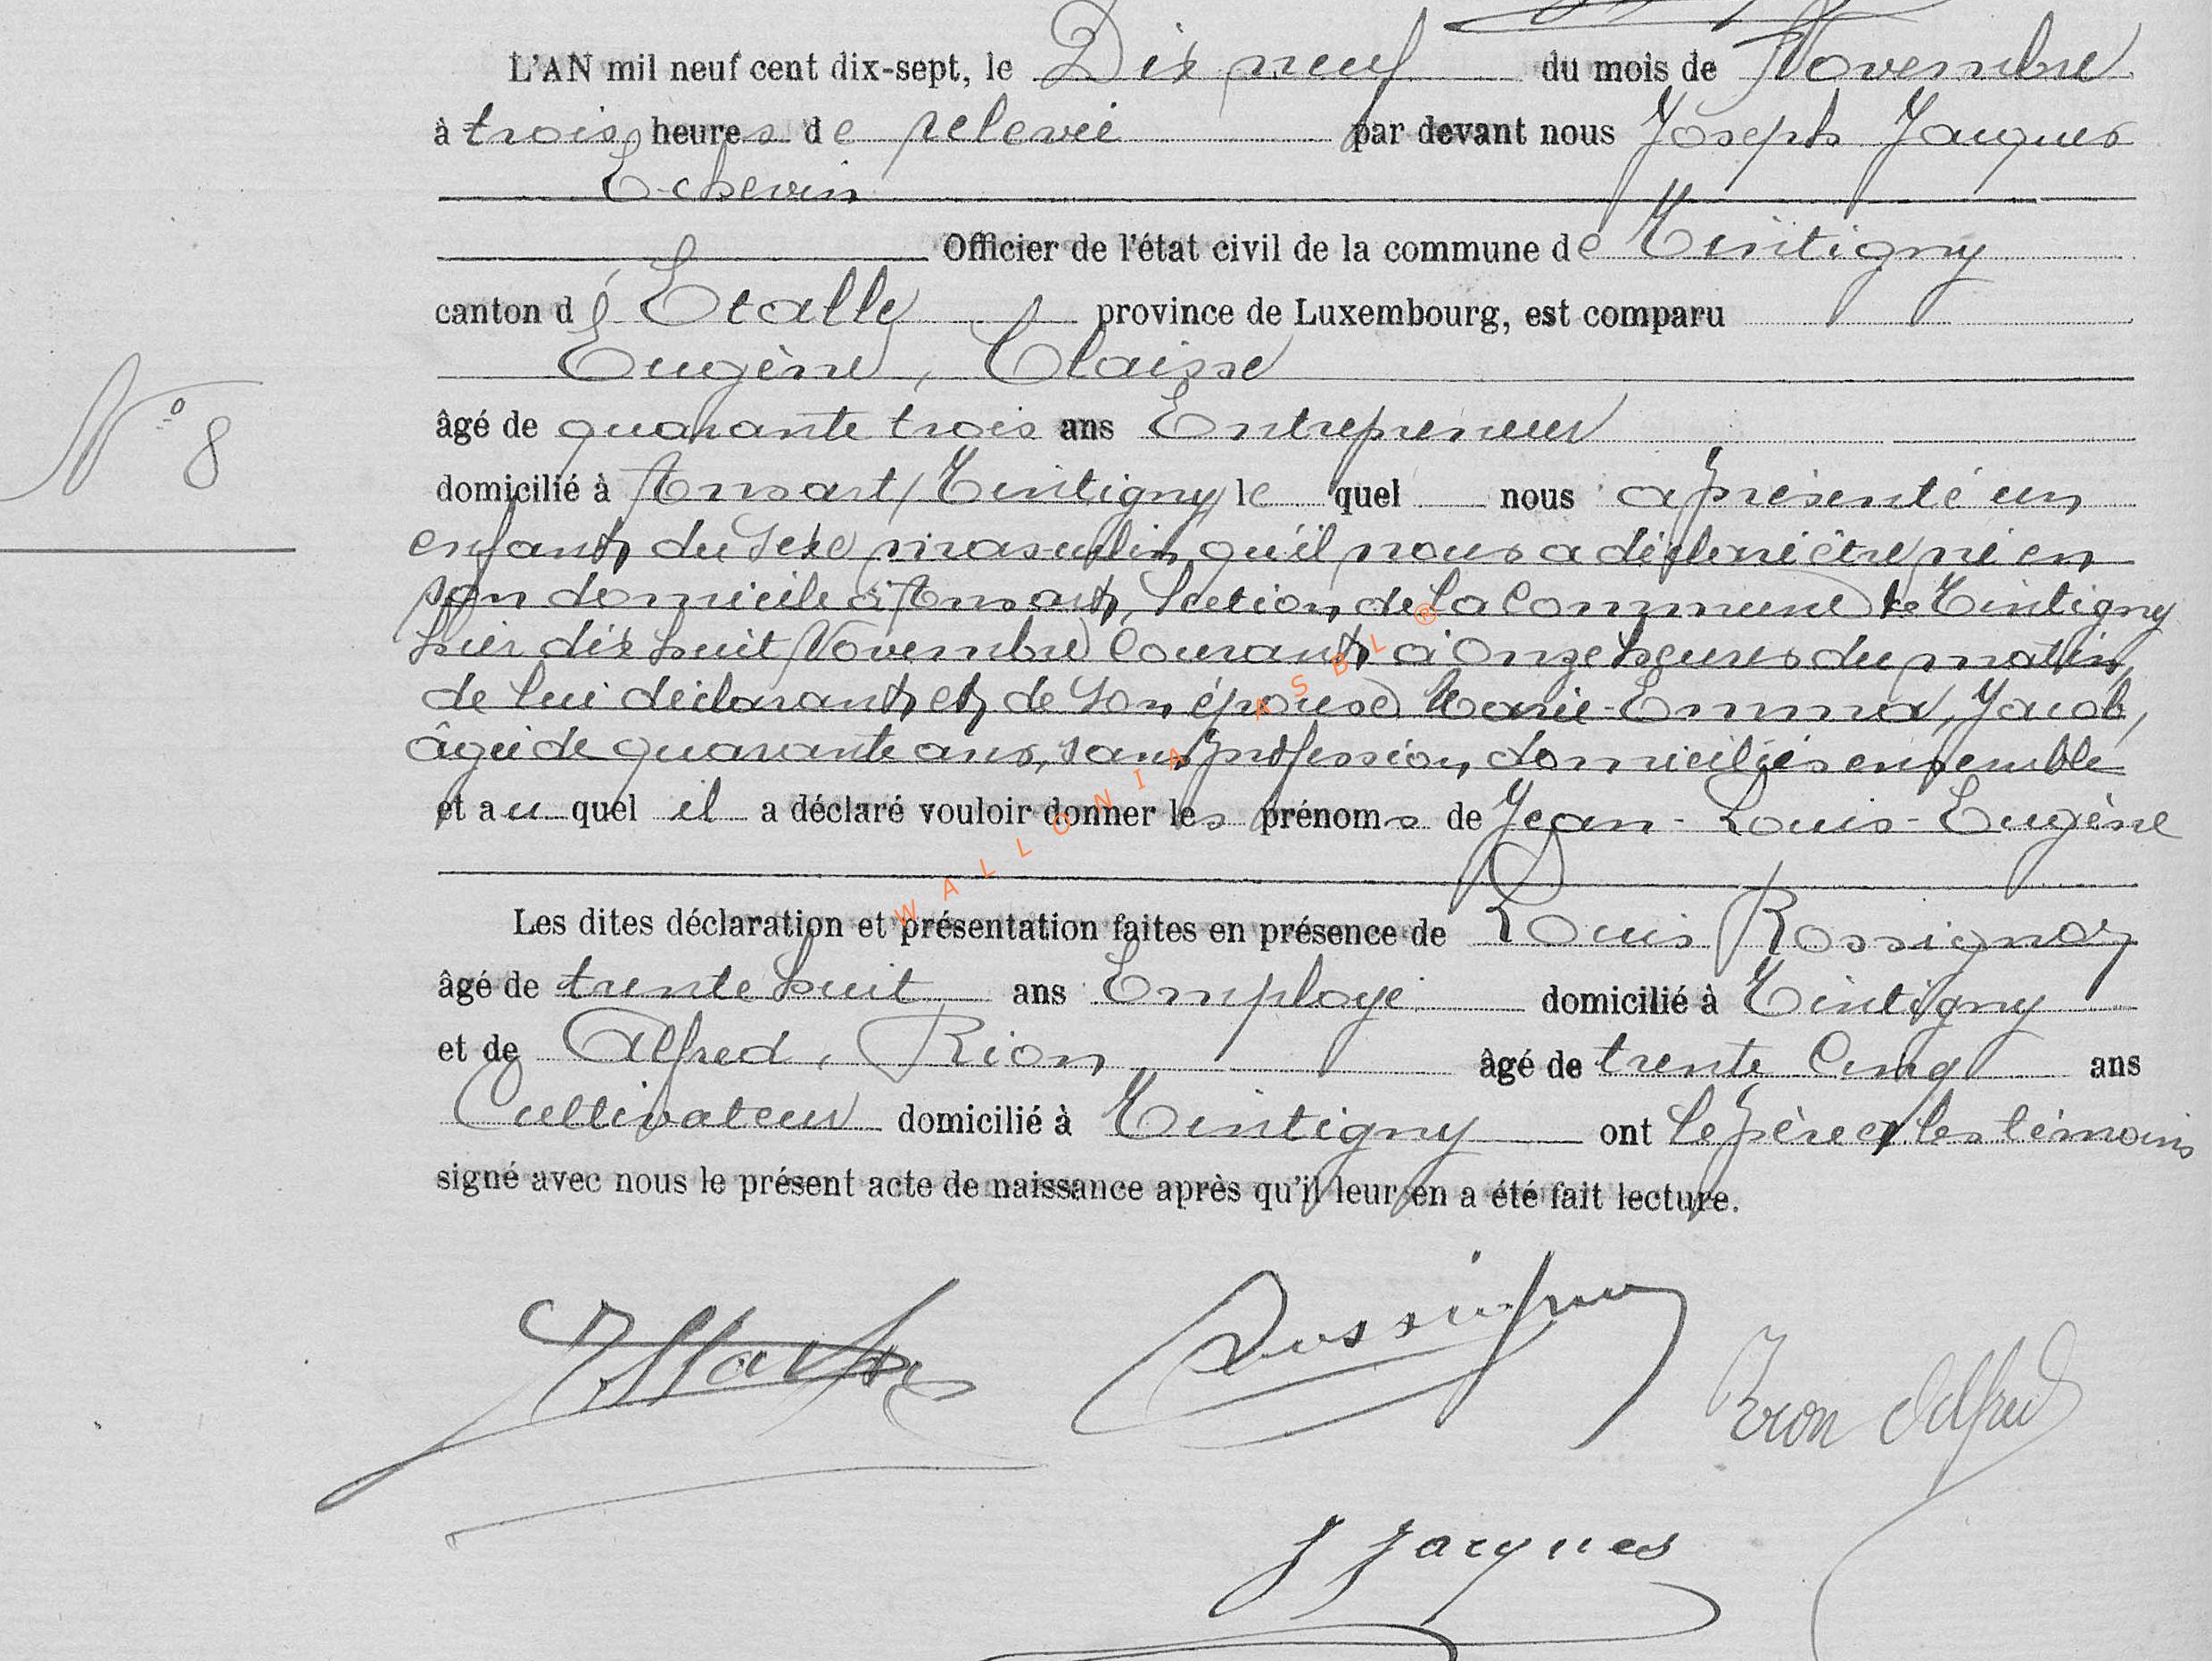 L'AN mil neuf cent dix-sept, le Dix neuf du mois de Novembre
à trois heures de relevée par devant nous Joseph Jacques
Echevin
Officier de l'état civil de la commune de Tintigny
canton d'Etalle province de Luxembourg, est comparu
Eugène, Claisse
N° 8
âgé de quarante trois ans Entrepreneur
domicilié à Ansart, Tintigny, lequel nous a présenté un
enfant du sexe masculin qu'il nous a déclaré être né en
son domicile à Ansart, Section de la Commune de Tintigny
hier dix huit Novembre Courant à Onze heures du matin,
de lui déclarant et de son épouse Marie-Emma, Jacob,
âgée de quarante ans, sans profession, domiciliés ensemble
et auquel il a déclaré vouloir donner les prénoms de Jean-Louis-Eugène
Les dites déclaration et présentation faites en présence de Louis Rossignon
âgé de trente huit ans Employé domicilié à Tintigny
et de Alfred, Rion âgé de trente Cinq ans
Cultivateur domicilié à Tintigny ont le père et les témoins
signé avec nous le présent acte de naissance après qu'il leur en a été fait lecture.
Rossignon
Rion Alfred
J Jacques
WALLONIA ASBL ®